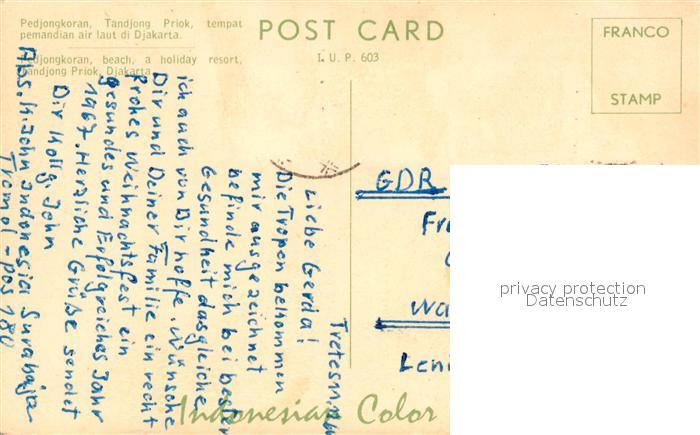 Pedjongkoran, Tandjong Priok, tempat
pemandian air laut di Djakarta.
Pedjongkoran, beach, a holiday resort,
Tandjong Priok, Djakarta.
POST CARD
I. U. P. 603
FRANCO
STAMP
Liebe Gerda!
Die Tropen bekommen
mir ausgezeichnet
befinde mich bei bester
Gesundheit dasgleiche
ich auch von Dir hoffe. Wünsche
Dir und Deiner Familie ein recht
Frohes Weihnachtsfest ein
gesundes und Erfolgreiches Jahr
1967. Herzliche Grüße sendet
Dir Kollg. John
Abs. K. John Indonesia Surabaja
Tromol-pos 180
GDR
Fr
Wa
Leni
privacy protection
Datenschutz
Indonesian Color